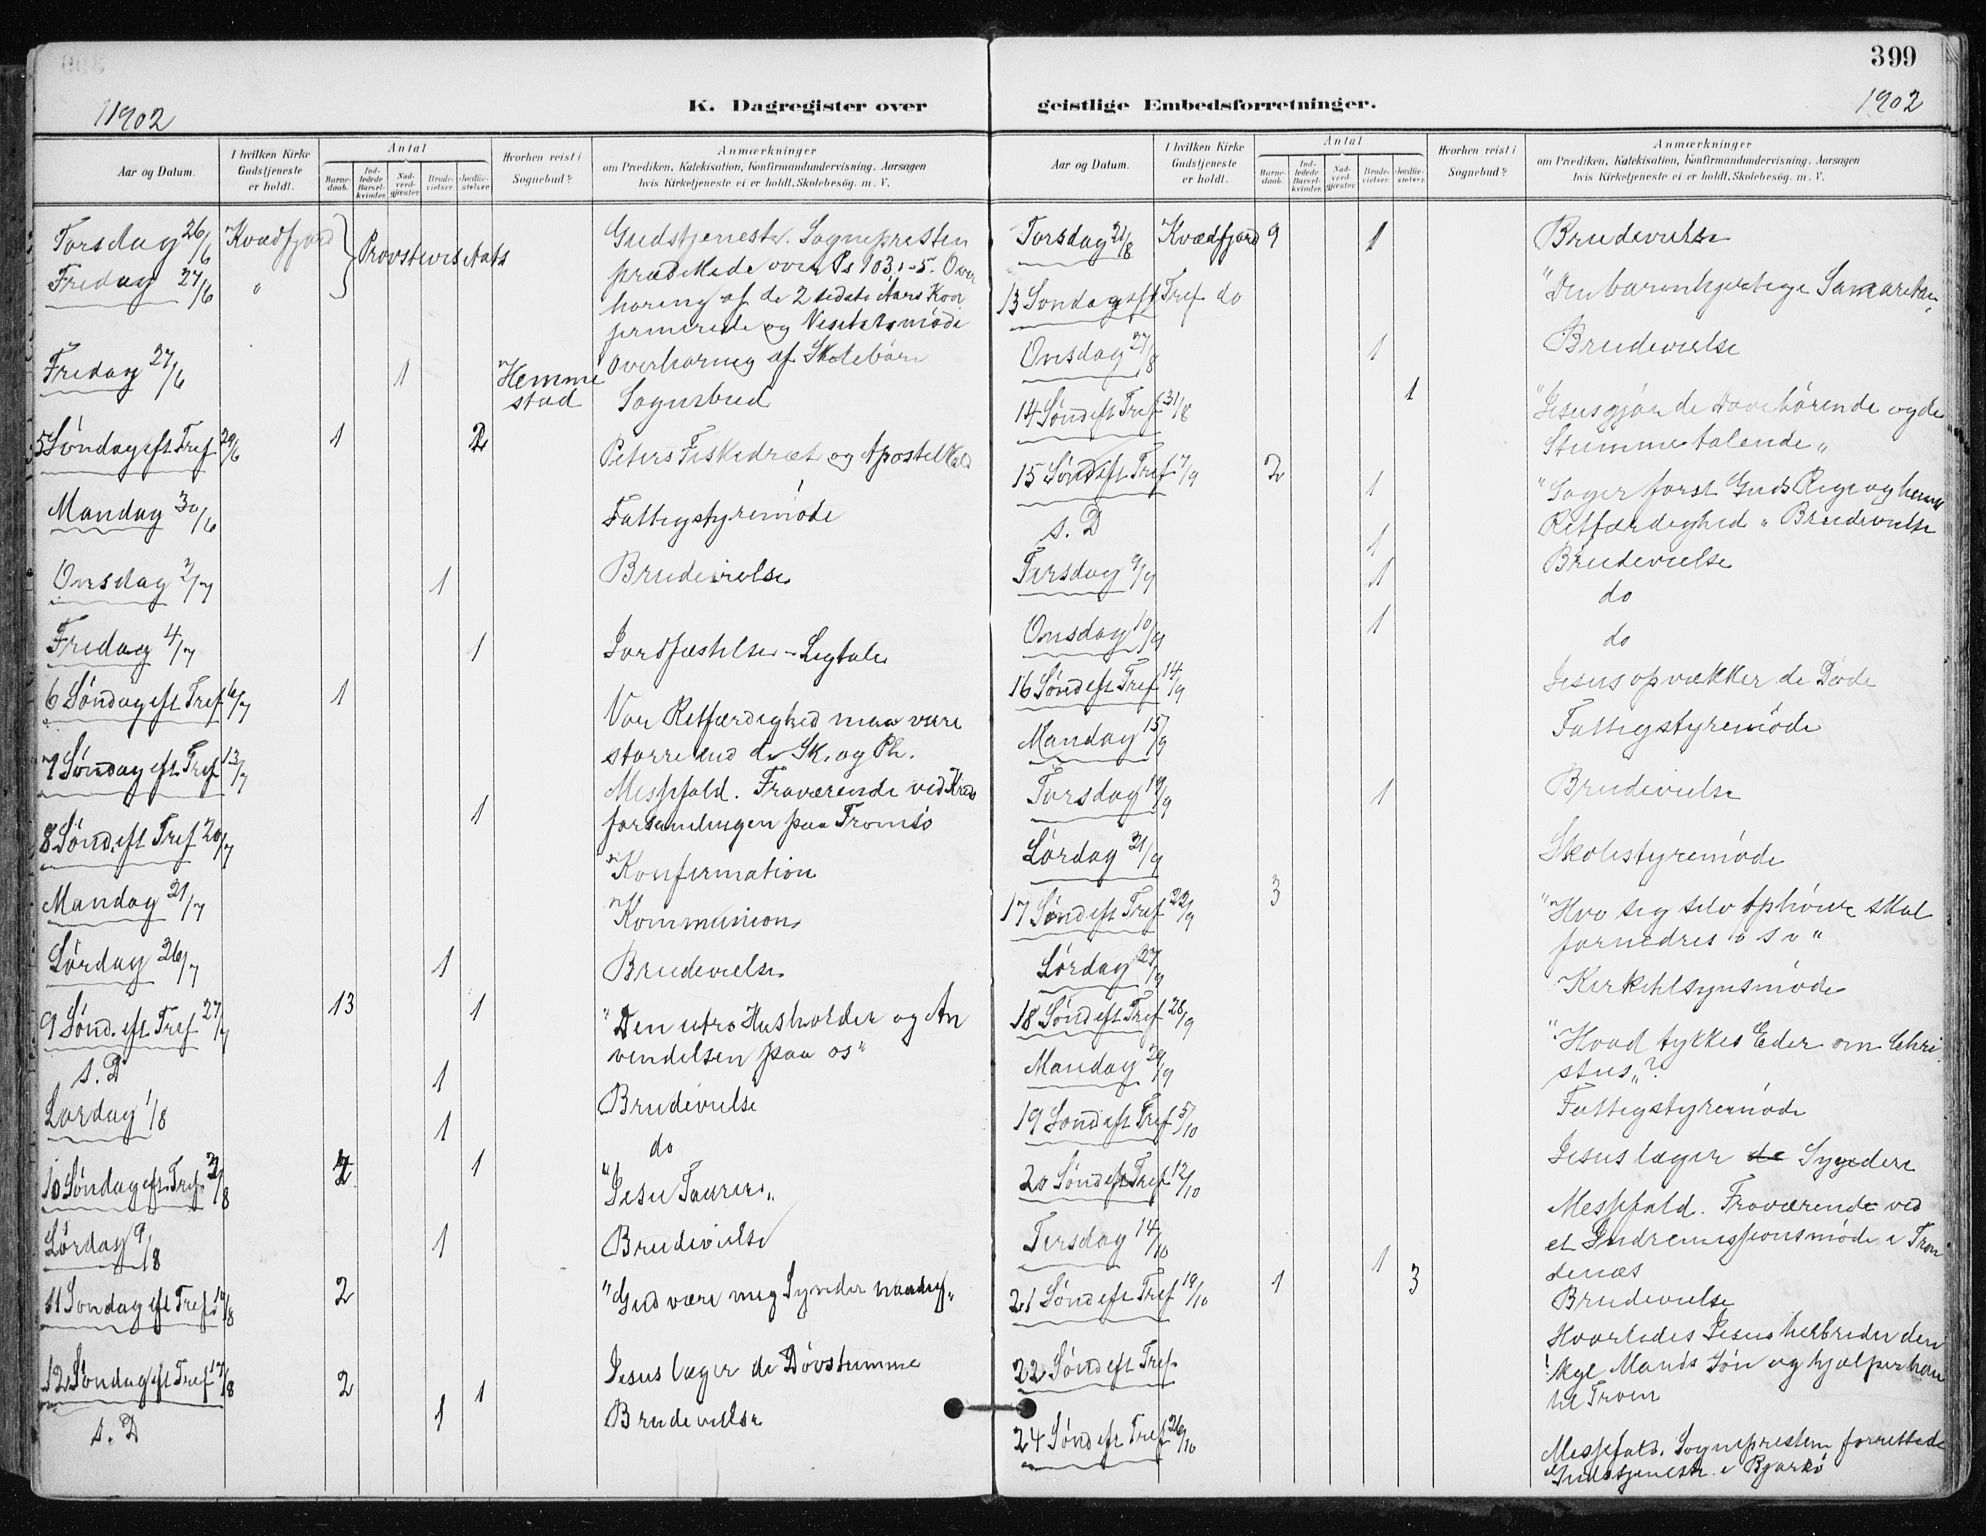 399
1902
K. Dagregister over
geistlige Embedsforretninger.
1902
Aar og Datum.
I hvilken Kirke Gudstjeneste er holdt.
Antal
Barnedaab.
Indledede Barselkvinder.
Nadverdgjester.
Brudevielser.
Jordfæstelser.
Hvorhen reist i Sognebud?
Anmærkninger
om Prædiken, Katekisation, Konfirmandundervisning, Aarsagen
hvis Kirketjeneste ei er holdt, Skolebesøg. m. V.
Torsdag 26/6 Kvædfjord Provstevisitats Gudstjeneste. Sognepresten
Fredag 27/6 " prædikede over Ps 103, 1-5. Over
høring af de 2 sidste Aars Kon
firmerede og Visitatsmøde
Fredag 27/6 1 Hemme Overhøring af Skolebørn
stad Sognebud
5 Søndag eft Tref 29/6 1 2 Peters Fiskedræt og Apostelkald
Mandag 30/6 Fattigstyremøde
Onsdag 2/7 1 Brudevielse
Fredag 4/7 1 Jordfæstelse - Ligtale
6 Søndag eft Tref 6/7 1 Vor Retfærdighed maa være
større end de Sk. og Ph.
7 Søndag eft Tref 13/7 Messefald. Fraværende ved Kreds
8 Sønd. eft Tref 20/7 1 forsamlingen paa Tromsø
Konfirmation
Mandag 21/7 Kommunion
Lørdag 26/7 1 Brudevielse
9 Sønd. eft Tref 27/7 13 1 "Den utro Husholder og An
vendelsen paa os"
s. D 1 Brudevielse
Lørdag 1/8 1 do
10 Søndag eft. Tref. 3/8 1 "Jesu Taarer"
Lørdag 9/8 1 Brudevielse
11 Søndag eft Tref. 10/8 2 "Gud være mig Synder naadig"
12 Søndag eft Tref 17/8 2 1 Jesus læger de Døvstumme
s. D 1 Brudevielse
Aar og Datum.
I hvilken Kirke Gudstjeneste er holdt.
Antal
Barnedaab.
Indledede Barselkvinder.
Nadverdgjester.
Brudevielser.
Jordfæstelser.
Hvorhen reist i Sognebud?
Anmærkninger
om Prædiken, Katekisation, Konfirmandundervisning, Aarsagen
hvis Kirketjeneste ei er holdt, Skolebesøg. m. V.
Torsdag 21/8 Kvædfjord 9 1 Brudevielse
13 Søndag eft Tref do "Den barmhjertige Samaritan"
Onsdag 27/8 1 Brudevielse
14 Sønd eft Tref 31/8 1 "Jesus gjør de Døve hørende og de
Stumme talende"
15 Sønd eft Tref 7/9 2 1 "Søger først Guds Rige og hans
Retfærdighed" Brudevielse
s. D 1 Brudevielse
Tirsdag 9/9 1 do
Onsdag 10/9 1 do
16 Sønd eft Tref 14/9 Jesus opvækker de Døde
Mandag 15/9 Fattigstyremøde
Torsdag 19/9 1 Brudevielse
Lørdag 21/9 Skolestyremøde
17 Sønd eft Tref 22/9 3 "Hvo sig selv ophøier skal
fornedres o s v"
Lørdag 27/9 Kirketilsynsmøde
18 Sønd eft Tref 28/9 "Hvad tykkes Eder om Chri
stus"?
Mandag 29/9 Fattigstyremøde
19 Sønd eft Tref 5/10 Jesus læger de Syndere
20 Sønd eft Tref. 12/10 Messefald. Fraværende ved
et Indremissionsmøde i Tron
denæs
Tirsdag 14/10 1 Brudevielse
21 Sønd eft Tref 19/10 1 3 Hvorledes Jesus helbreder den
kgl Mands Søn og hjælper ham
til Troen
22 Sønd eft Tref.
24 Sønd eft Tref 26/10 Messefald. Sognepresten forrettede
Gudstjeneste i Bjarkø